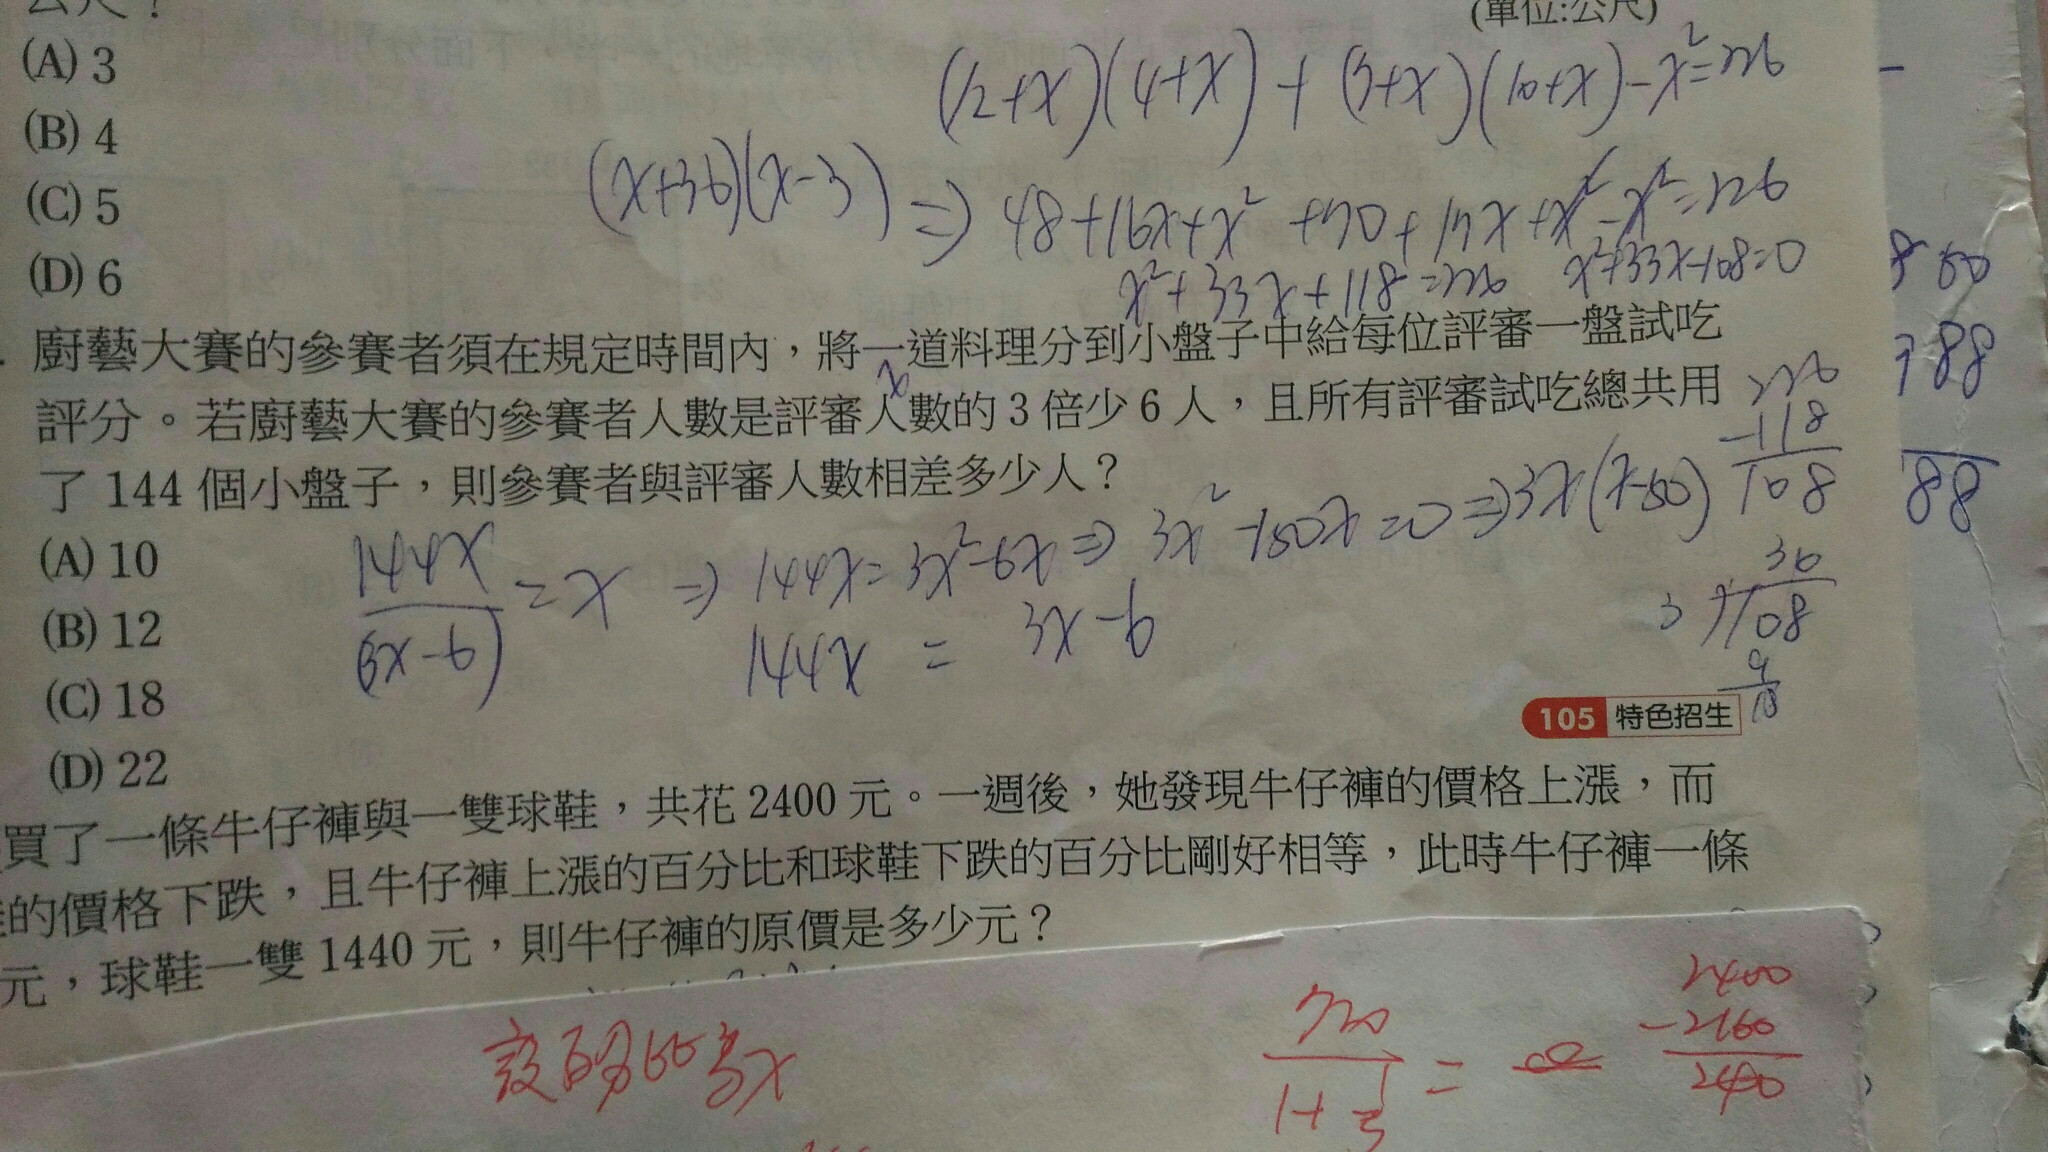 公尺？
(單位:公尺)
(A) 3
(B) 4
(C) 5
(D) 6
(12+x)(4+x)+(5+x)(10+x)-x²=226
(x+36)(x-3)
⇒ 48+16x+x²+70+17x+x²-x²=226
x²+33x+118=226
x²+33x-108=0
廚藝大賽的參賽者須在規定時間內，將一道料理分到小盤子中給每位評審一盤試吃
x
評分。若廚藝大賽的參賽者人數是評審人數的 3 倍少 6 人，且所有評審試吃總共用
了 144 個小盤子，則參賽者與評審人數相差多少人？
(A) 10
(B) 12
(C) 18
(D) 22
144x/(3x-6)=x ⇒ 144x=3x²-6x ⇒ 3x²-150x=0 ⇒ 3x(x-50)
144x = 3x-6
226
-118
108
36
3 108
9
18
88
88
105 特色招生
買了一條牛仔褲與一雙球鞋，共花 2400 元。一週後，她發現牛仔褲的價格上漲，而
的價格下跌，且牛仔褲上漲的百分比和球鞋下跌的百分比剛好相等，此時牛仔褲一條
元，球鞋一雙 1440 元，則牛仔褲的原價是多少元？
設百分比為x
720/1+
=
2400
-2160
240